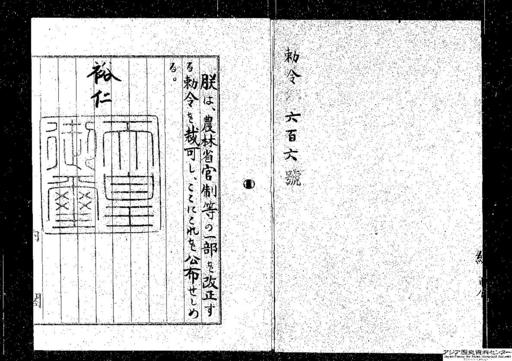 勅令 六百六號
朕は、農林省官制等の一部を改正す
る勅令を裁可し、ここにこれを公布せしめ
る。
裕仁
天皇
御璽
アジア歴史資料センター